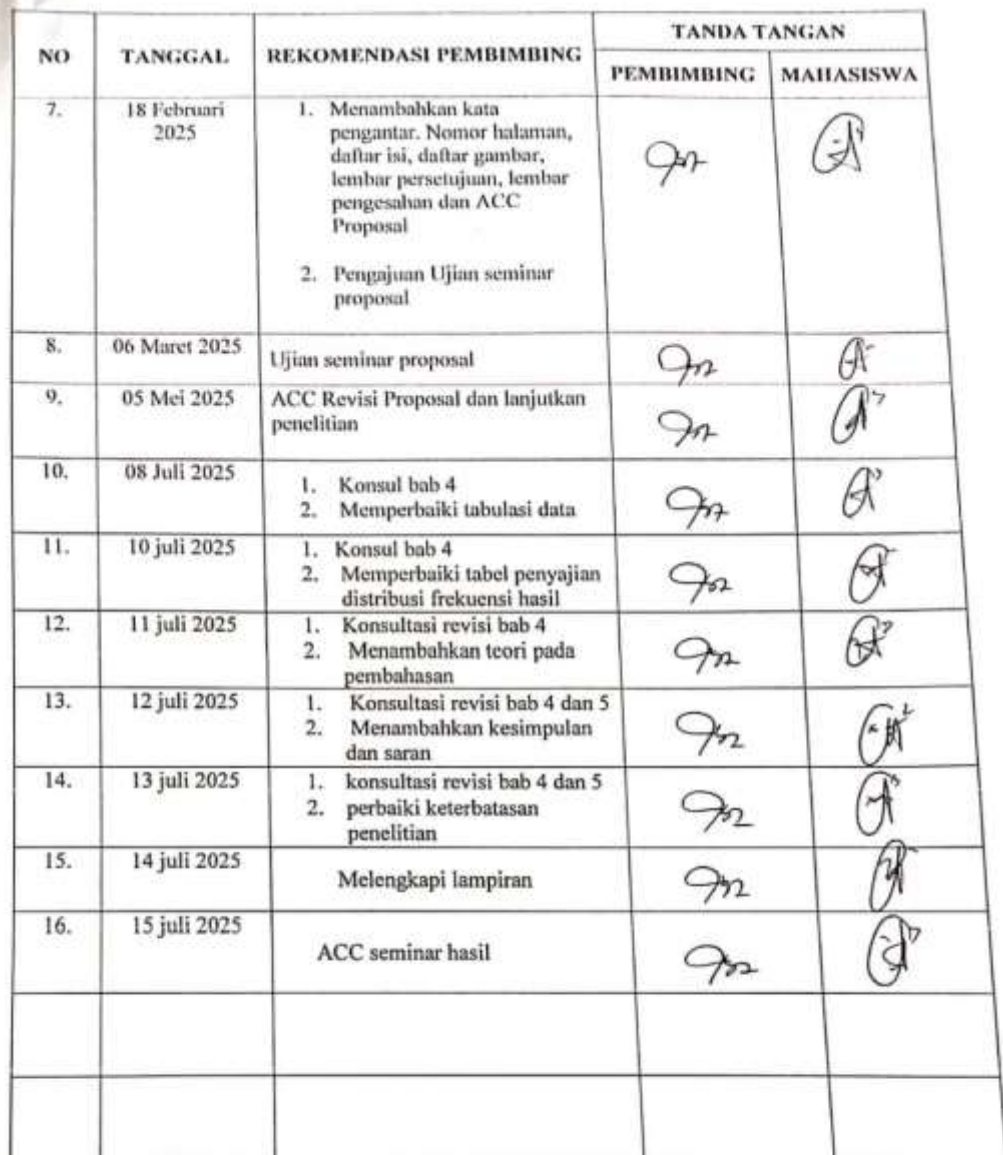 NO TANGGAL REKOMENDASI PEMBIMBING TANDA TANGAN
PEMBIMBING MAHASISWA
7. 18 Februari 2025
1. Menambahkan kata
pengantar. Nomor halaman,
daftar isi, daftar gambar,
lembar persetujuan, lembar
pengesahan dan ACC
Proposal
2. Pengajuan Ujian seminar
proposal
8. 06 Maret 2025 Ujian seminar proposal
9. 05 Mei 2025 ACC Revisi Proposal dan lanjutkan
penelitian
10. 08 Juli 2025
1. Konsul bab 4
2. Memperbaiki tabulasi data
11. 10 juli 2025 1. Konsul bab 4
2. Memperbaiki tabel penyajian
distribusi frekuensi hasil
12. 11 juli 2025 1. Konsultasi revisi bab 4
2. Menambahkan teori pada
pembahasan
13. 12 juli 2025 1. Konsultasi revisi bab 4 dan 5
2. Menambahkan kesimpulan
dan saran
14. 13 juli 2025 1. konsultasi revisi bab 4 dan 5
2. perbaiki keterbatasan
penelitian
15. 14 juli 2025 Melengkapi lampiran
16. 15 juli 2025 ACC seminar hasil